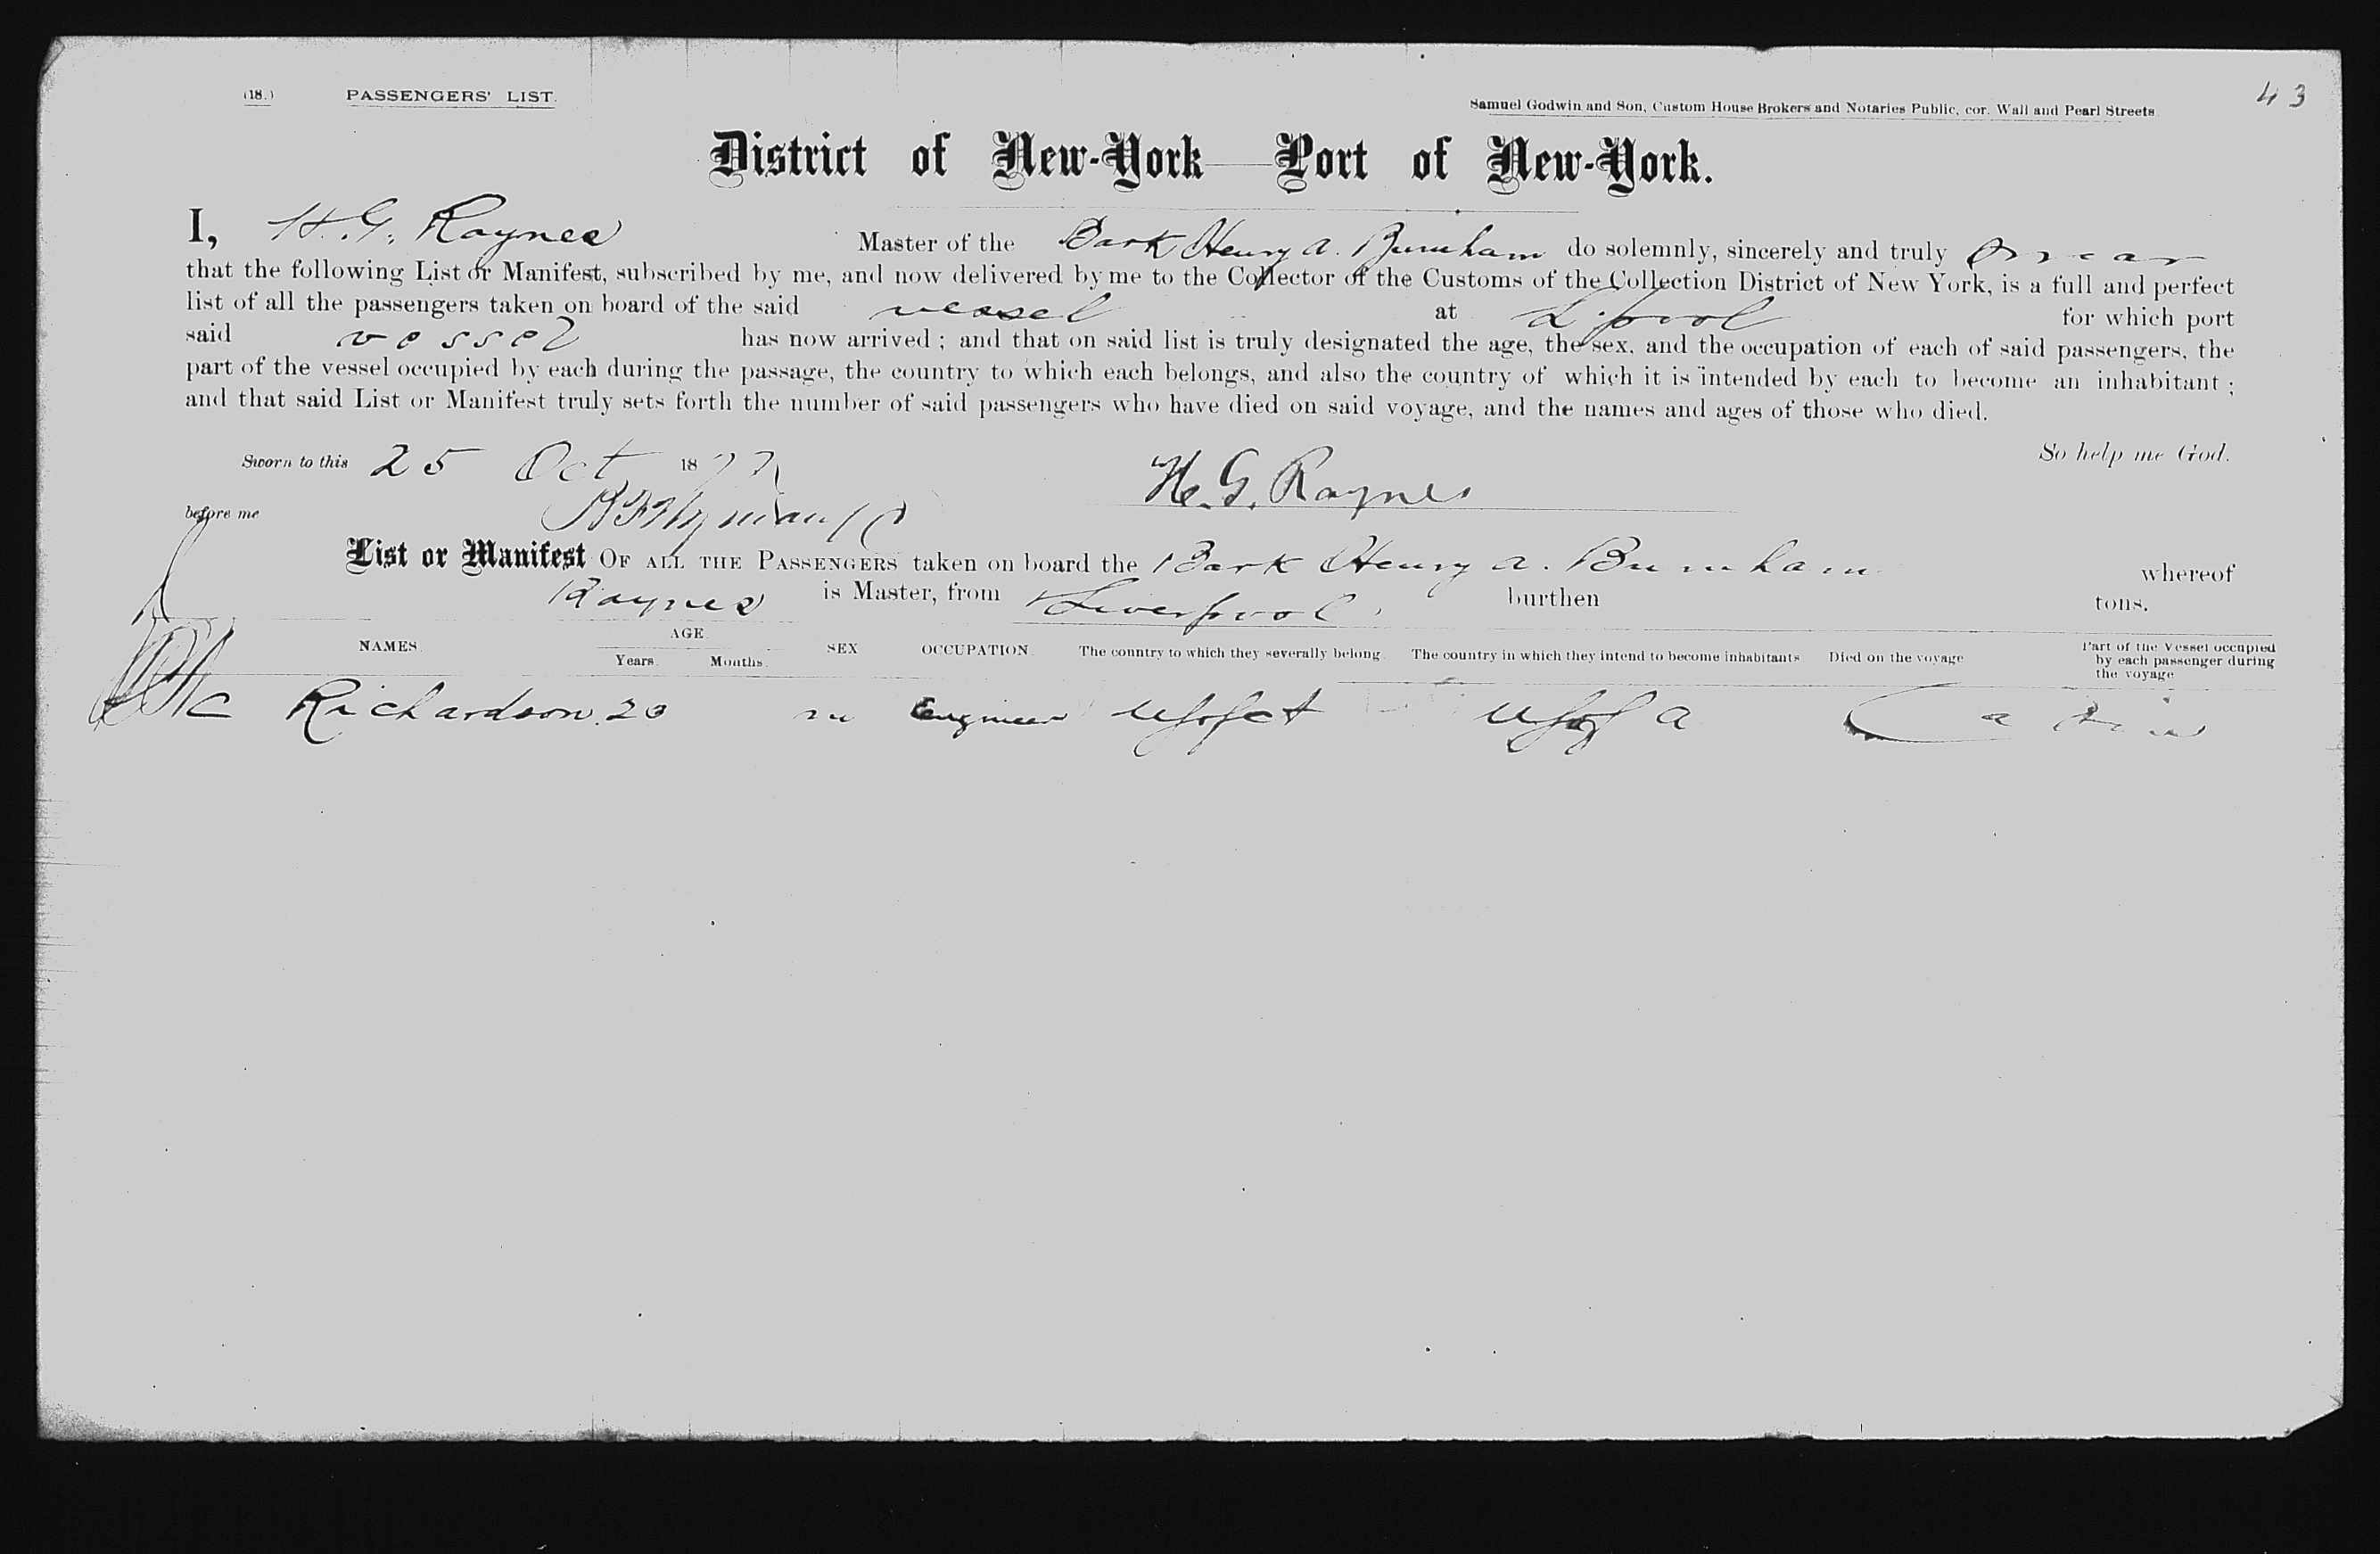 (18.) PASSENGERS' LIST. Samuel Godwin and Son, Custom House Brokers and Notaries Public, cor. Wall and Pearl Streets 43
District of New-York—Port of New-York.
I, H. G. Raynes Master of the Bark Henry A. Burnham do solemnly, sincerely and truly swear
that the following List or Manifest, subscribed by me, and now delivered by me to the Collector of the Customs of the Collection District of New York, is a full and perfect
list of all the passengers taken on board of the said vessel at L'pool for which port
said vessel has now arrived ; and that on said list is truly designated the age, the sex, and the occupation of each of said passengers, the
part of the vessel occupied by each during the passage, the country to which each belongs, and also the country of which it is intended by each to become an inhabitant ;
and that said List or Manifest truly sets forth the number of said passengers who have died on said voyage, and the names and ages of those who died.
So help me God.
Sworn to this 25 Oct 1877 H. G. Raynes
before me
List or Manifest OF ALL THE PASSENGERS taken on board the Bark Henry A. Burnham whereof
Raynes is Master, from Liverpool, burthen tons.
NAMES. AGE. Years. Months. SEX OCCUPATION. The country to which they severally belong. The country in which they intend to become inhabitants Died on the voyage Part of the Vessel occupied by each passenger during the voyage
Richardson 20 m Engineer U S of A Cabin